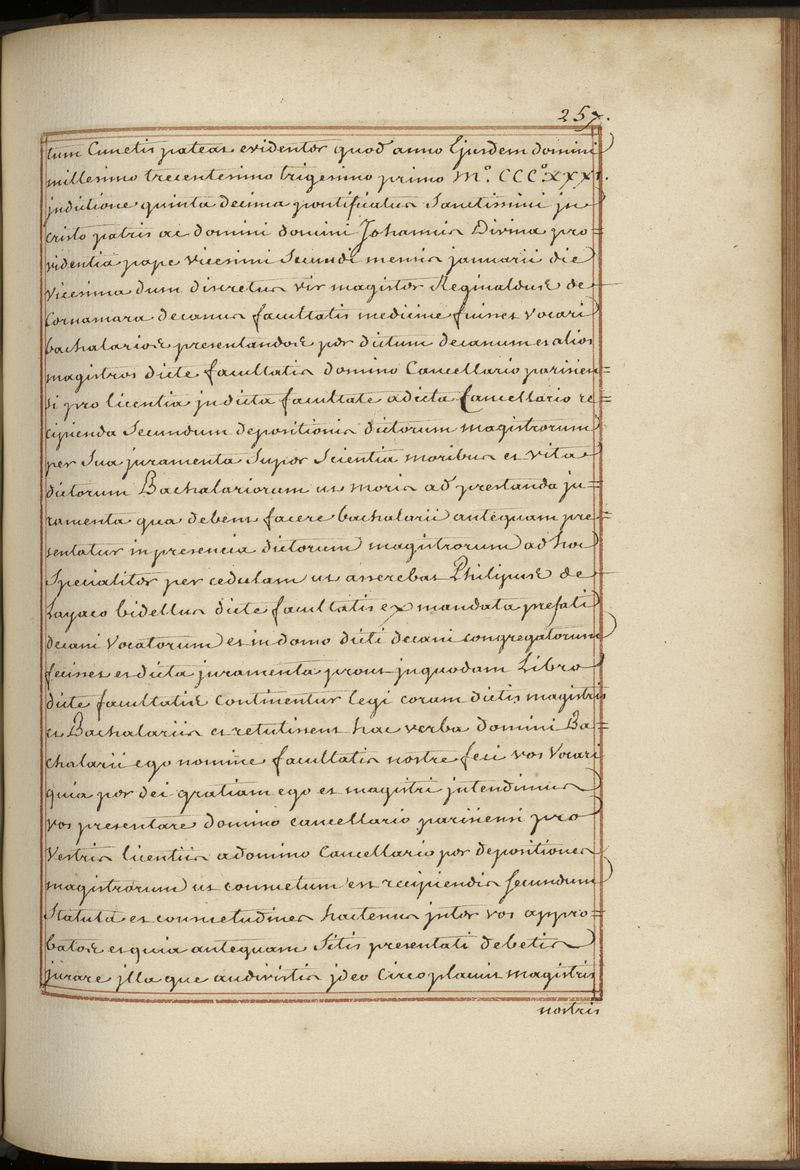 257.
tum Cunctis pateat evidenter quod anno Ejusdem domini
millesimo trecentesimo trigesimo primo Mº. CCCº. XXXI.
jndictione quinta decima pontificatus Sanctissimi jn
cristo patris ac domini domini Johannis Divina pro=
videntia pape vicesimi Secundi mensis januarii die
Vicesima dum discretus vir magister Reginaldus de
Cornamara decanus facultatis medicine fuisset Vocari
bachalarios presentandos per dictum decanum et alios
magistros dicte facultatis domino Cancellario parisien=
si pro licentia jn dicta facultate a dicto Cancellario re=
cipienda Secundum depositionis dictorum magistrorum
per Sua juramenta Super Scientia moribus et vita
dictorum Bachalariorum ut moris ad prestanda ju=
ramenta qua debent facere bachalarii antequam pre=
sentatur in presencia dictorum magistrorum ad hoc
Specialiter per cedulam ut asserebat Philipus de
Layaco bidellus dicte facultatis ex mandata prefati
decani Vocatorum et in domo dicti decani congregatorum
fecisset et dicta juramenta prout jn quodam Libro
dicte facultatis continentur legi coram dictis magistris
et Bachalariis et retulissent hac verba domini Ba=
chalarii ego nomine facultatis nostre feci vos Vocari
quia per dei gratiam ego et magistri jntendimus
vos presentare domino cancellario parisiensi pro
Vestris licentiis a domino Cancellario per depositiones
magistrorum ut consuetum est recipiendis secundum
Statuta et consuetudines hactenus jnter vos appro=
batos et quia antequam Sitis presentati debetis
jurare jlla que audivistis jdeo Circo placuit magistris
nostris